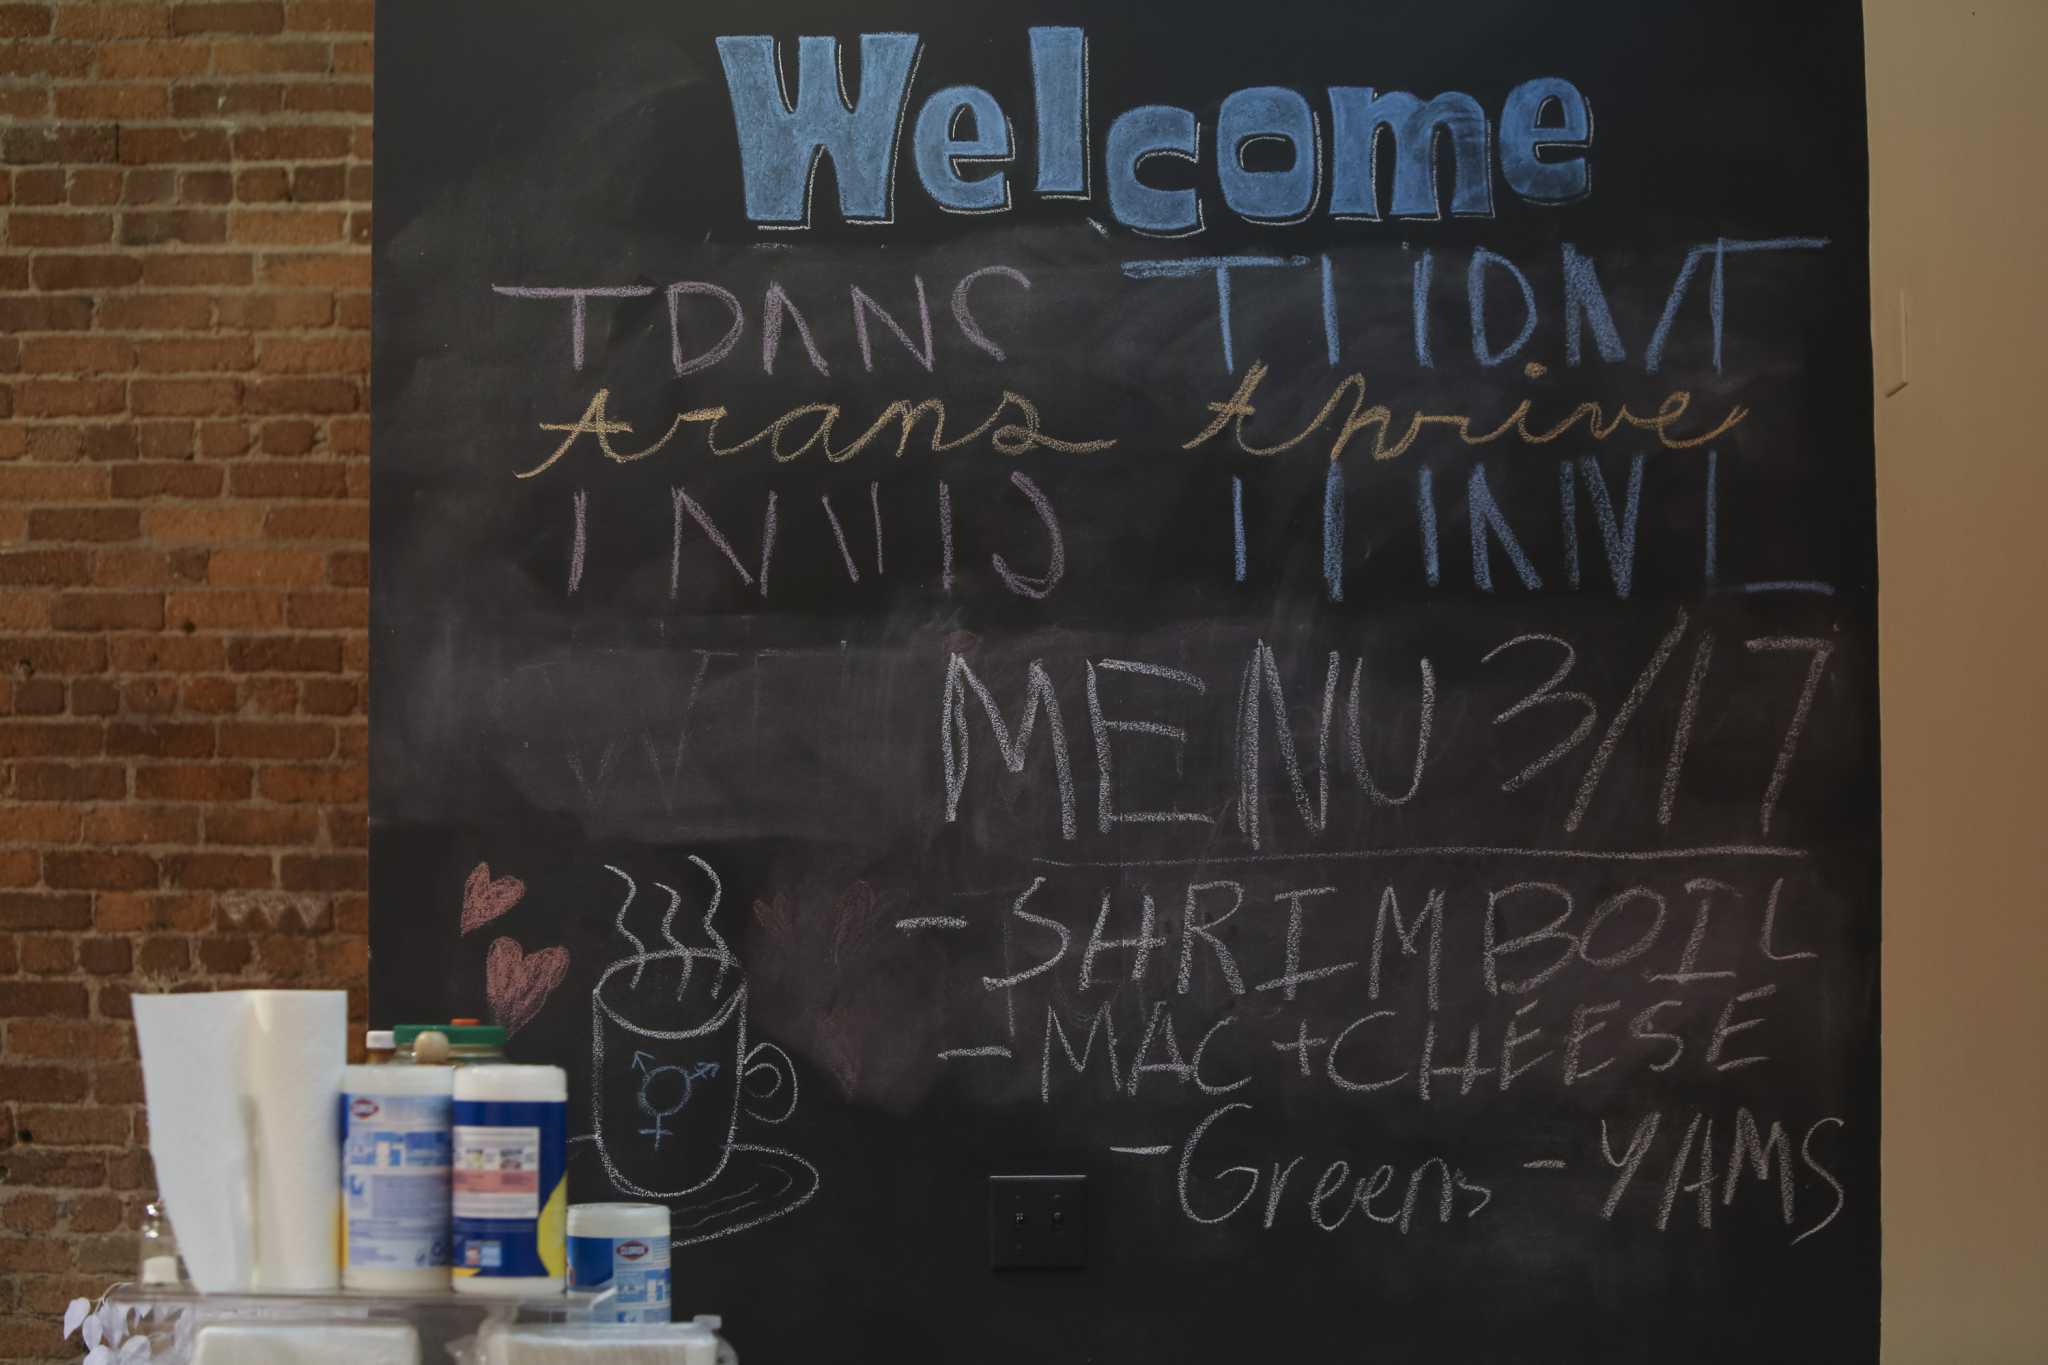 Welcome
TRANS THRIVE
trans thrive
MENU 3/17
- SHRIMP BOIL
- MAC + CHEESE
- Greens - YAMS
CLOROX
CLOROX